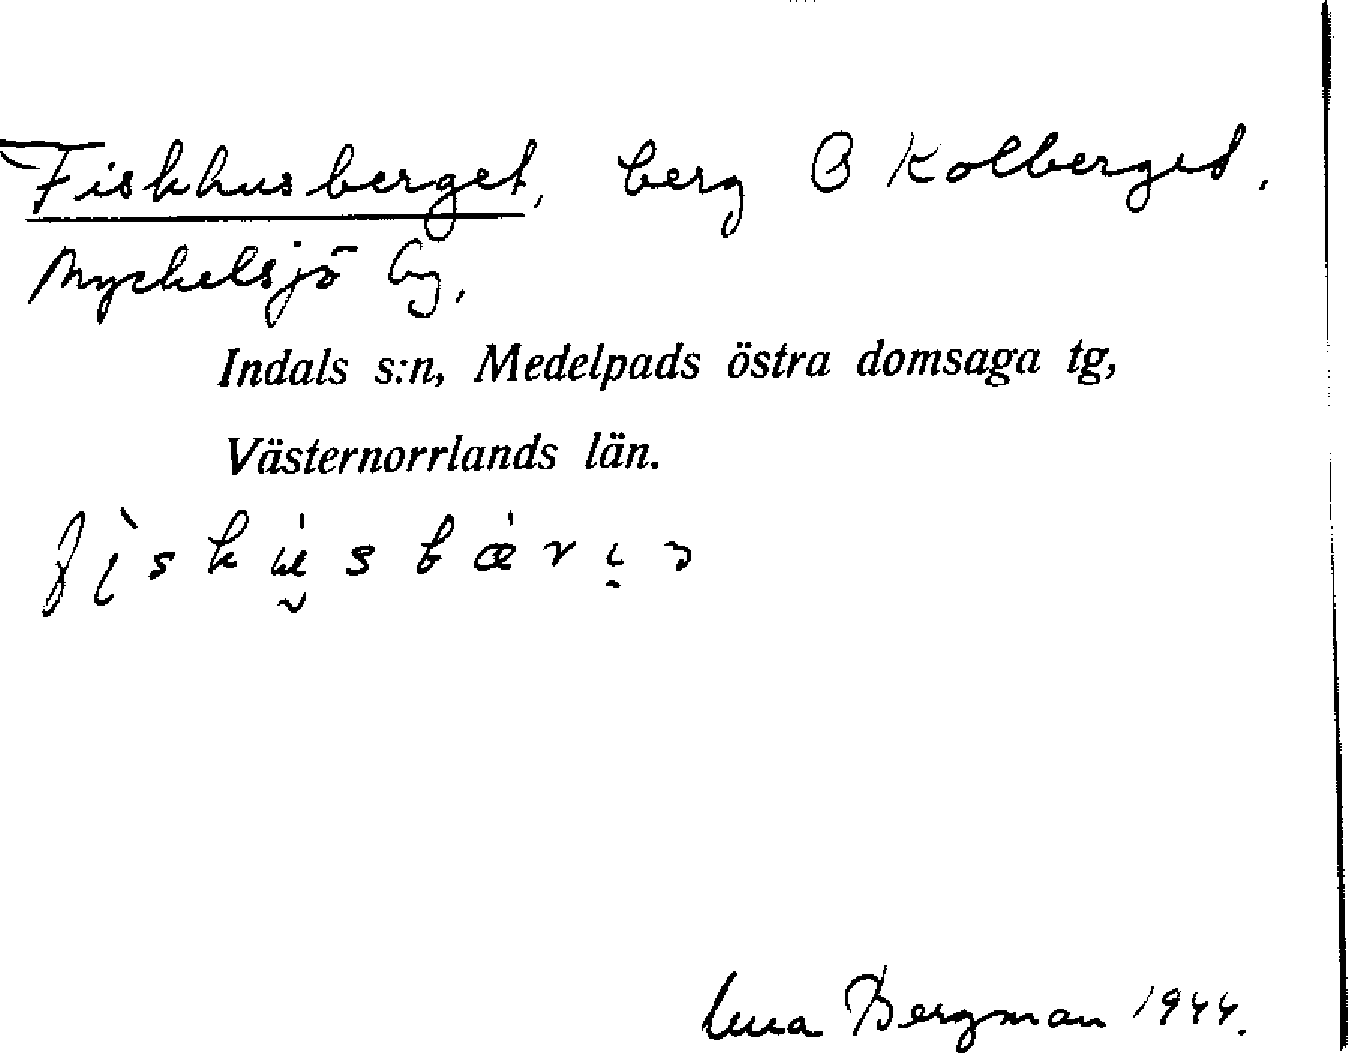 Fiskhusberget, berg Ö Kolberget.
Myckelsjö by.
Indals s:n, Medelpads östra domsaga tg,
Västernorrlands län.
Bergman 1944.